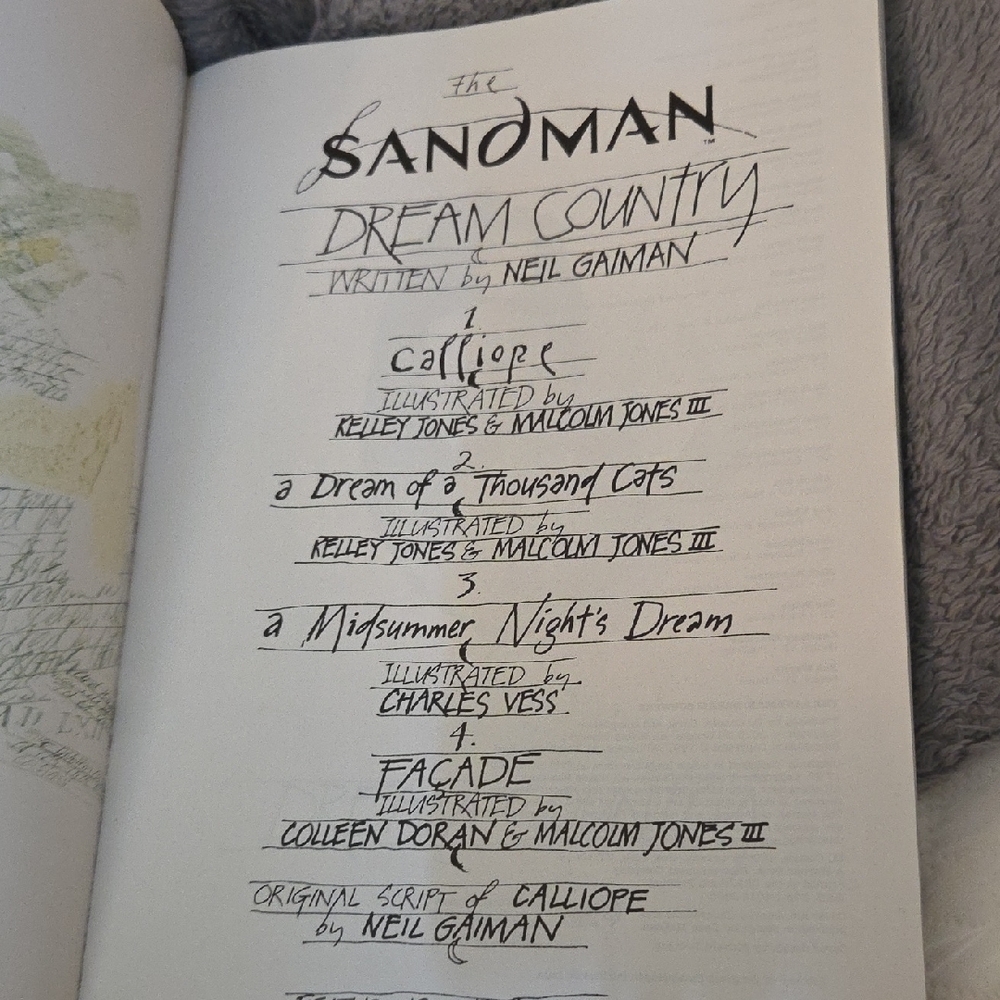 the
SANDMAN™
DREAM COUNTRY
WRITTEN by NEIL GAIMAN
1.
Calliope
ILLUSTRATED by
KELLEY JONES & MALCOLM JONES III
2.
a Dream of a Thousand Cats
ILLUSTRATED by
KELLEY JONES & MALCOLM JONES III
3.
a Midsummer Night's Dream
ILLUSTRATED by
CHARLES VESS
4.
FAÇADE
ILLUSTRATED by
COLLEEN DORAN & MALCOLM JONES III
ORIGINAL SCRIPT of CALLIOPE
by NEIL GAIMAN